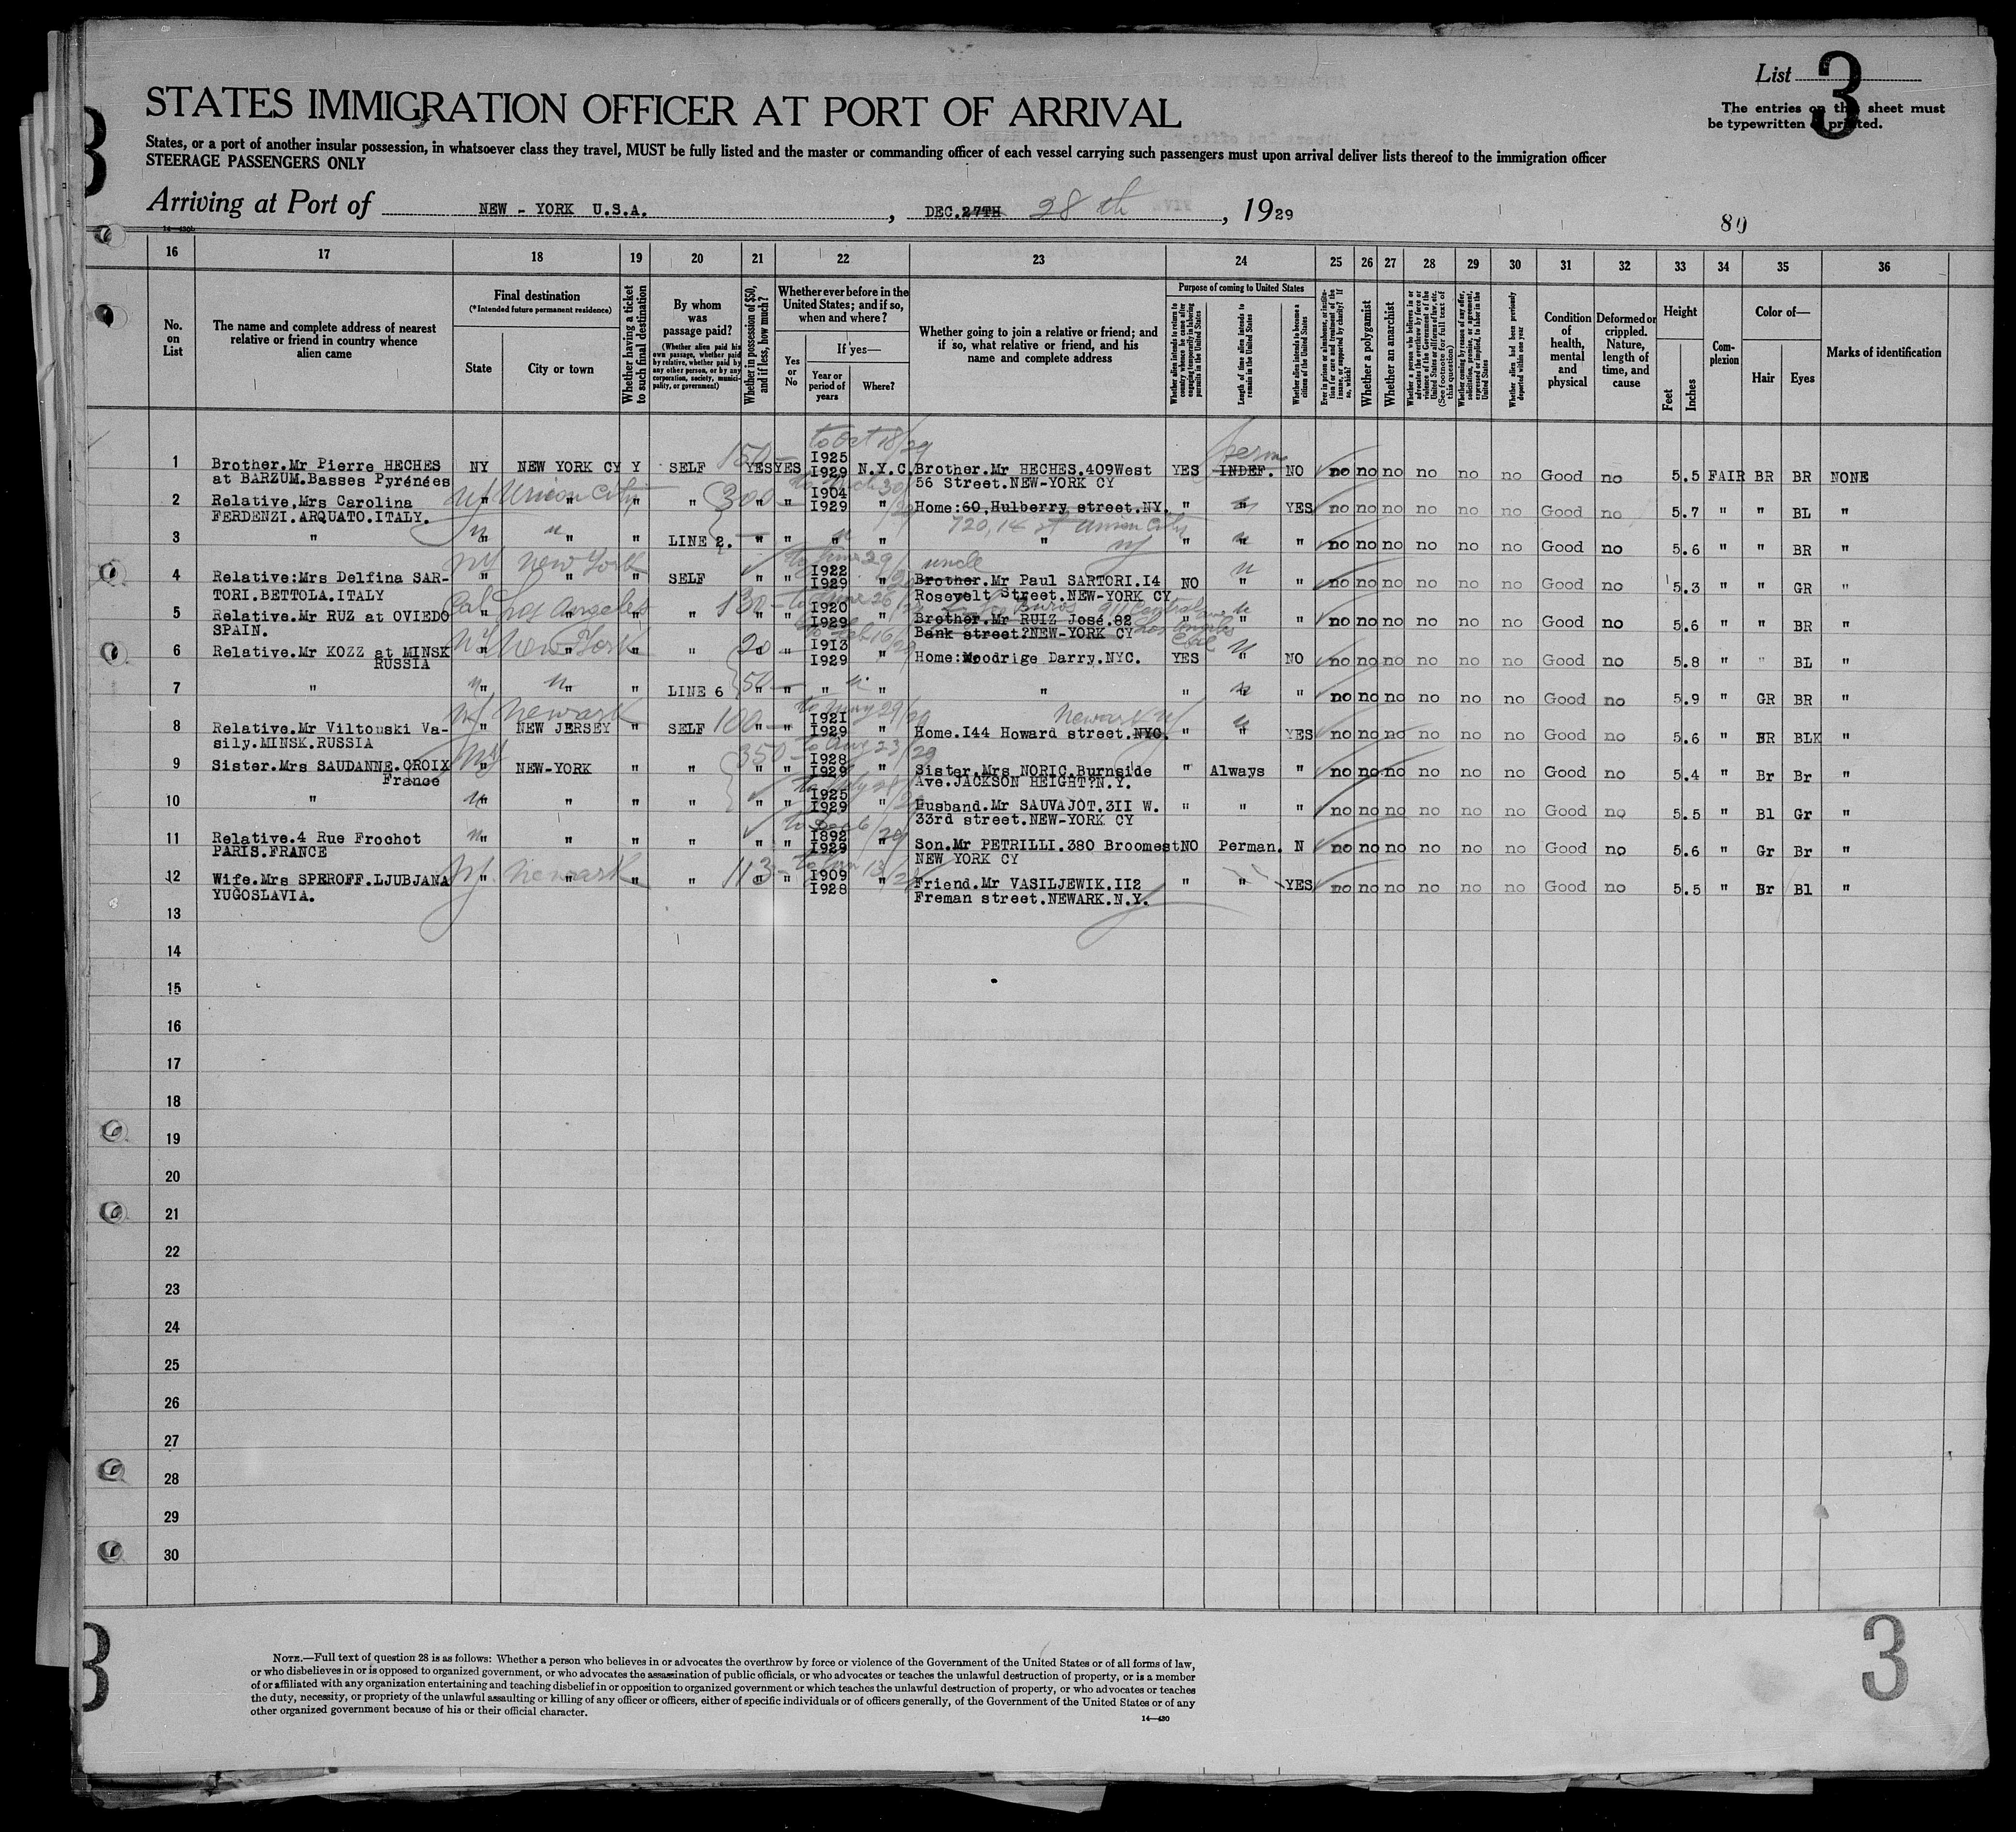 List 3
The entries on this sheet must
be typewritten or printed.
STATES IMMIGRATION OFFICER AT PORT OF ARRIVAL
States, or a port of another insular possession, in whatsoever class they travel, MUST be fully listed and the master or commanding officer of each vessel carrying such passengers must upon arrival deliver lists thereof to the immigration officer
STEERAGE PASSENGERS ONLY
Arriving at Port of NEW - YORK U.S.A. , DEC.27TH 28th , 1929
14-430b
80
16 17 18 19 20 21 22 23 24 25 26 27 28 29 30 31 32 33 34 35 36
No. on List
The name and complete address of nearest relative or friend in country whence alien came
Final destination
(*Intended future permanent residence)
State
City or town
Whether having a ticket to such final destination
By whom was passage paid?
(Whether alien paid his own passage, whether paid by relative, whether paid by any other person, or by any corporation, society, municipality, or government)
Whether in possession of $50, and if less, how much?
Whether ever before in the United States; and if so, when and where?
Yes or No
If yes—
Year or period of years
Where?
Whether going to join a relative or friend; and if so, what relative or friend, and his name and complete address
Purpose of coming to United States
Whether alien intends to return to country whence he came after engaging temporarily in laboring pursuits in the United States
Length of time alien intends to remain in the United States
Whether alien intends to become a citizen of the United States
Ever in prison or almshouse, or institution for care and treatment of the insane, or supported by charity? If so, which?
Whether a polygamist
Whether an anarchist
Whether a person who believes in or advocates the overthrow by force or violence of the Government of the United States or all forms of law, etc. (See footnote for full text of this question)
Whether coming by reason of any offer, solicitation, promise, or agreement, expressed or implied, to labor in the United States
Whether alien had been previously deported within one year
Condition of health, mental and physical
Deformed or crippled. Nature, length of time, and cause
Height
Feet
Inches
Complexion
Color of—
Hair
Eyes
Marks of identification
to Oct 18/29 perm
1 Brother.Mr Pierre HECHES NY NEW YORK CY Y SELF 150- YES YES I925 I929 N.Y.C. Brother.Mr HECHES.409West YES INDEF. NO no no no no no no Good no 5.5 FAIR BR BR NONE
at BARZUM.Basses Pyrénées 56 Street.NEW-YORK CY
2 Relative,Mrs Carolina NJ " Union City " " " 300- " " I904 I929 " Home:60,Hulberry street.NY. " " YES no no no no no no Good no 5.7 " " BL "
FERDENZI.ARQUATO.ITALY. 720,14 st Union City
3 " " " " LINE 2. " " " " " NJ " " " no no no no no no Good no 5.6 " " BR "
NY New York to June 29/29 uncle
4 Relative:Mrs Delfina SAR- " " " SELF " " I922 I929 " Brother.Mr Paul SARTORI.I4 NO " " no no no no no no Good no 5.3 " " GR "
TORI.BETTOLA.ITALY Rosevelt Street.NEW-YORK CY
5 Relative.Mr RUZ at OVIEDO Cal " Los Angeles " " " 130- " " I920 I929 " Brother.Mr RUIZ José.82 " " " no no no no no no Good no 5.6 " " BR "
911 Central
SPAIN. Bank street?NEW-YORK CY Los Angeles Cal
6 Relative.Mr KOZZ at MINSK NY " New York " " " 20- " " I913 I929 " Home:Woodrige Darry.NYC. YES " NO no no no no no no Good no 5.8 " " BL "
RUSSIA
7 " " " " LINE 6 50- " " " " " " " " no no no no no no Good no 5.9 " GR BR "
NJ Newark to May 29/29 Newark NJ
8 Relative.Mr Viltouski Va- " NEW JERSEY " SELF 100- " " I921 I929 " Home.I44 Howard street.NYC. " " YES no no no no no no Good no 5.6 " BR BLK "
sily.MINSK.RUSSIA
NY 350- to Aug 23/29
9 Sister.Mrs SAUDANNE.CROIX " NEW-YORK " " " " I928 I929 " Sister.Mrs NORIG.Burnside " Always " no no no no no no Good no 5.4 " Br Br "
France Ave.JACKSON HEIGHT?N.Y.
10 " " " " " " " I925 I929 " Husband.Mr SAUVAJOT.3II W. " " " no no no no no no Good no 5.5 " Bl Gr "
33rd street.NEW-YORK CY
11 Relative.4 Rue Frochot " " " " " " I892 I929 " Son.Mr PETRILLI.380 Broomest NO Perman. N no no no no no no Good no 5.6 " Gr Br "
PARIS.FRANCE NEW YORK CY
12 Wife.Mrs SPEROFF.LJUBJANA NJ. " Newark " " " 113- " " I909 I928 " Friend.Mr VASILJEWIK.II2 " " YES no no no no no no Good no 5.5 " Br Bl "
YUGOSLAVIA. Freman street.NEWARK.N.Y.
13
14
15
16
17
18
19
20
21
22
23
24
25
26
27
28
29
30
NOTE.—Full text of question 28 is as follows: Whether a person who believes in or advocates the overthrow by force or violence of the Government of the United States or of all forms of law,
or who disbelieves in or is opposed to organized government, or who advocates the assassination of public officials, or who advocates or teaches the unlawful destruction of property, or is a member
of or affiliated with any organization entertaining and teaching disbelief in or opposition to organized government or which teaches the unlawful destruction of property, or who advocates or teaches
the duty, necessity, or propriety of the unlawful assaulting or killing of any officer or officers, either of specific individuals or of officers generally, of the Government of the United States or of any
other organized government because of his or their official character.
14—430
3
3